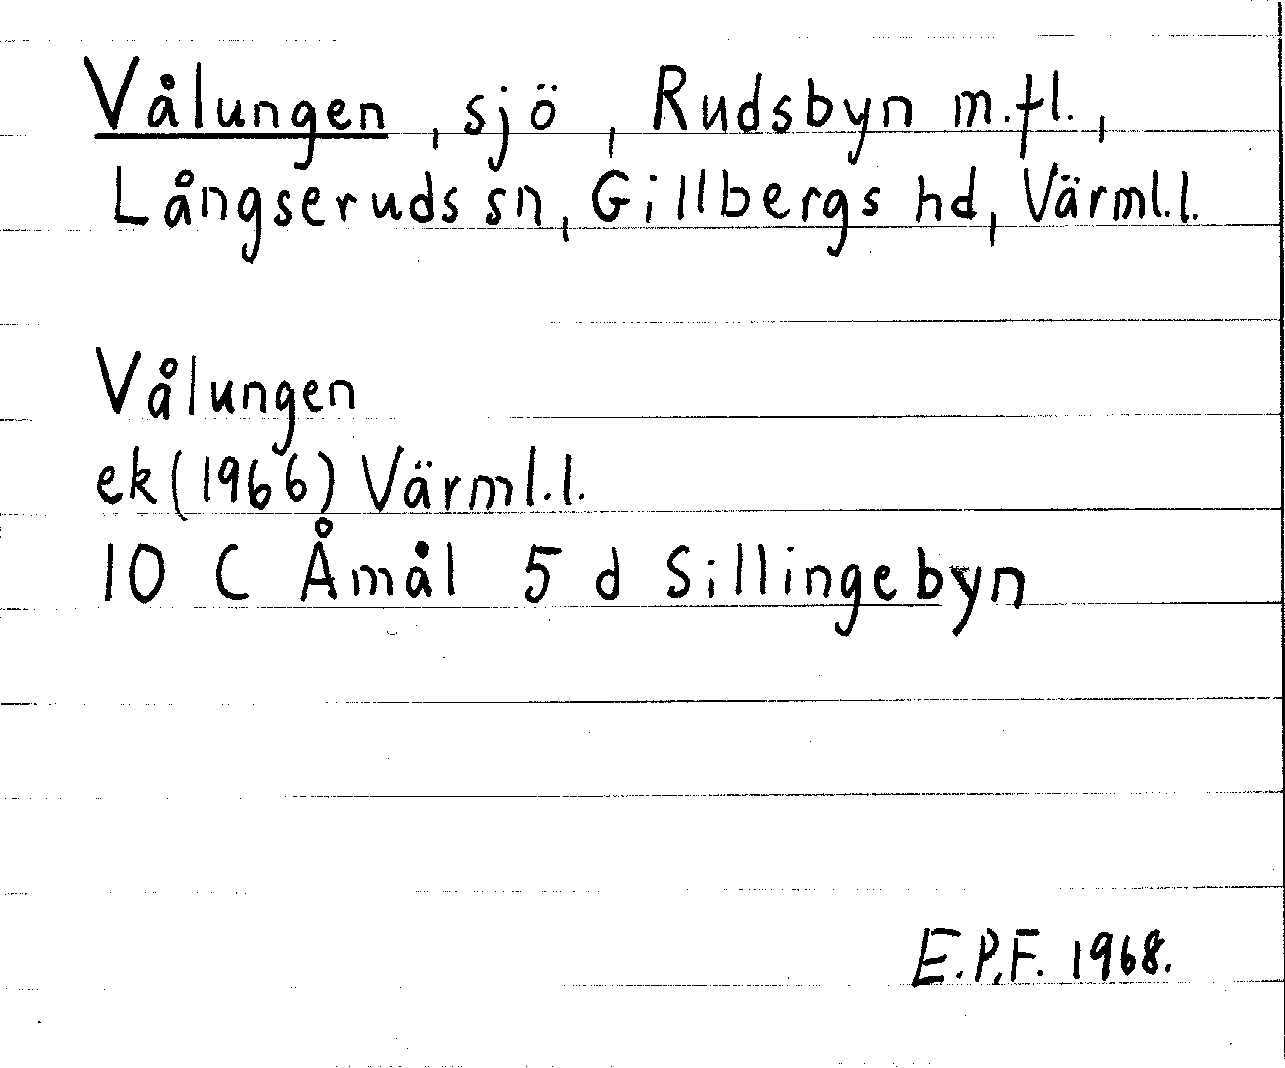 Vålungen, sjö, Rudsbyn m.fl.,
Långseruds sn, Gillbergs hd, Värml.l.
Vålungen
ek (1966) Värml.l.
10 C Åmål 5 d Sillingebyn
E.P.F. 1968.